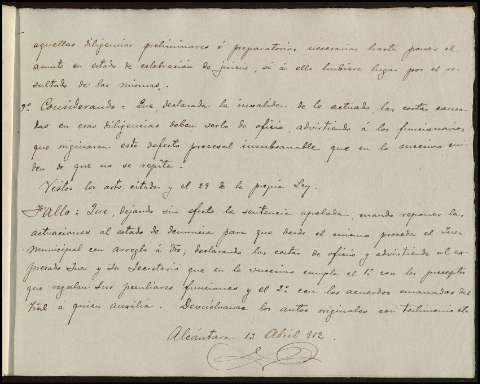 aquellas diligencias preliminares ó preparatorias necesarias hasta poner el
asunto en estado de celebración de juicio, si á ello hubiere lugar por el re-
sultado de las mismas.
9º Considerando: Que declarada la invalidez de lo actuado las costas causa-
das en esas diligencias deben serlo de oficio, advirtiendo á los funcionarios
que originaron este defecto procesal insubsanable que en lo sucesivo cui-
den de que no se repita.
Vistos los arts. citados y el 29 de la propia Ley.
Fallo: Que, dejando sin efecto la sentencia apelada, mando reponer las
actuaciones al estado de denuncia para que desde el mismo proceda el Juez
municipal con arreglo á dro, declarando las costas de oficio y advirtiendo al ex-
presado Juez y su Secretario que en lo sucesivo cumpla el 1º con los preceptos
que regulan sus peculiares funciones y el 2º con los acuerdos emanados del
Tral á quien auxilia. Devuélvanse los autos originales con testimonio
Alcántara 13 Abril 912.